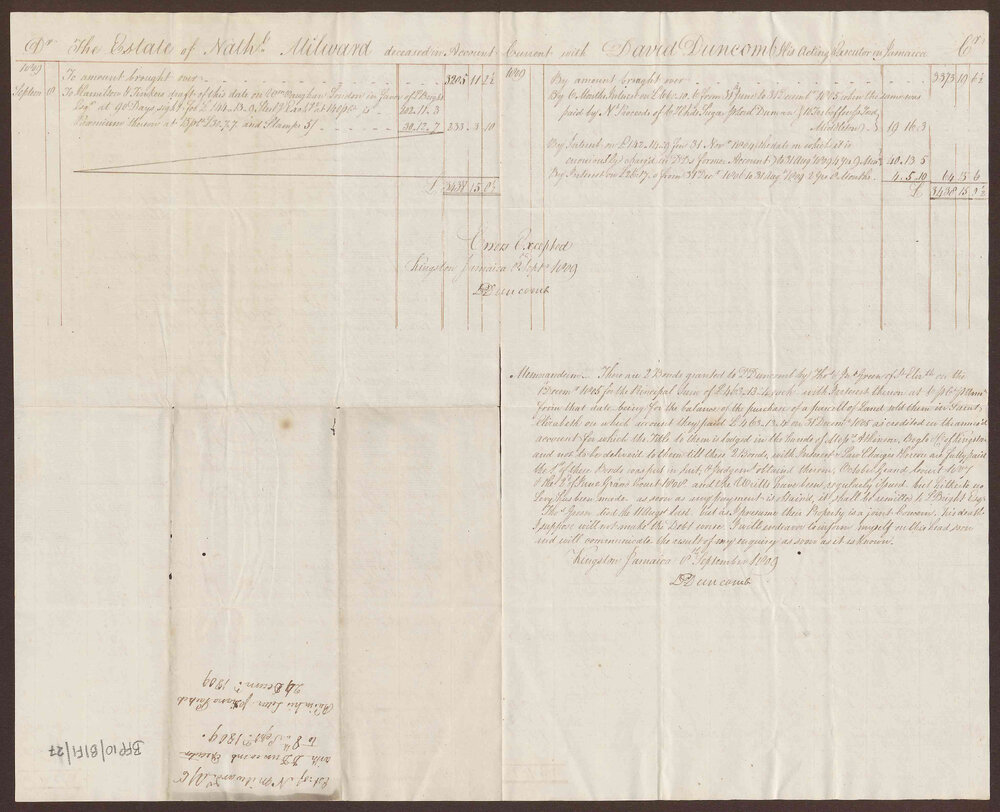 Dr The Estate of Nathl. Milward deceased in Account Current with David Duncomb His Acting Executor in Jamaica Cr
1809
To amount brought over 3205 11 2½
Septem 8 To Hamilton & Finkers draft of this date on Vaughan London in favor of Bright
Esqr at 90 Days sight for £144.13.9 Sterl 202.11.3
Premium thereon at and Stamps 5/ 30.12.7 233 3 10
£ 3438 15 0½
1809
By amount brought over 3373 19 6½
By 6 Months Interest on £661.10.6 from 30th June to 31 Decembr 1805 when the same was
paid by Nt Proceeds of 6 Hhds Sugar Duncan
Middleton 19 16 3
By Interest on £142.14.9 from 31 Novr 1804 the date on which it is
erroneously charged in former Account to 31 Augt 1809 4 Yrs 9 Mos 40.13 5
By Interest on £26.17.0 from 31 Decr 1806 to 31 Augt 1809 2 Yrs 8 Months 4.5.10 64 15 6
£ 3438 15 0½
Errors Excepted
Kingston Jamaica 8th Septr 1809
D Duncomb
Memorandum There are 2 Bonds granted to D Duncomb by Thos & Jno Green of St Elizth on the
Decemr 1805 for the Principal Sum of £463.13.4 each with Interest thereon at 6 p Ct p Annm
from that date being for the balance of the purchase of a parcel of Land sold them in Saint
Elizabeth on which account they paid £463.13.4 on 31 Decemr 1805 as credited in the annexed
account for which the Title to them is lodged in the hands of Messrs Atkinson, Bogle
and not to be deliver'd to them till these 2 Bonds, with Interest & Law Charges thereon are fully paid
the 1st of these Bonds was put in suit & Judgement obtained thereon, October Grand Court 1807
& the 2d June Grand Court 1808 and the Writts have been regularly issued but hitherto no
Levy has been made as soon as any payment is obtain'd, it shall be remitted to Bright Esqr
Thos Green died the 11 Augt last but as I presume their Property is a joint Concern his death
I suppose will not make the Debt worse. I will endeavor to inform myself on this head soon
and will communicate the result of my enquiry as soon as it is known.
Kingston Jamaica 8th September 1809
D Duncomb
Est of N Milward Dr A/C
with D Duncomb Executor
To 8th Septr 1809
Rec'd in his Letter pr Packet
24 Decemr 1809
BFP10/B1F1/27